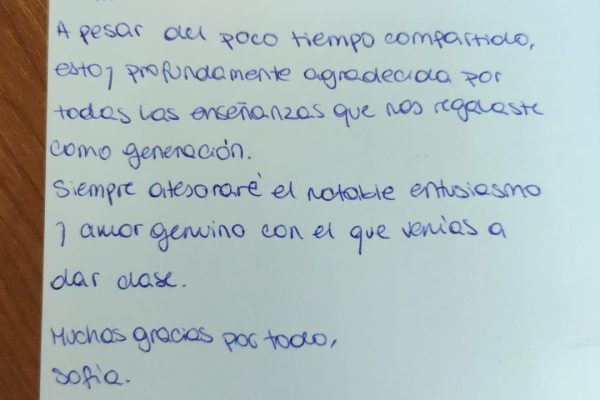 A pesar del poco tiempo compartido,
estoy profundamente agradecida por
todas las enseñanzas que nos regalaste
como generación.
Siempre atesoraré el notable entusiasmo
y amor genuino con el que venías a
dar clase.
Muchas gracias por todo,
Sofía.